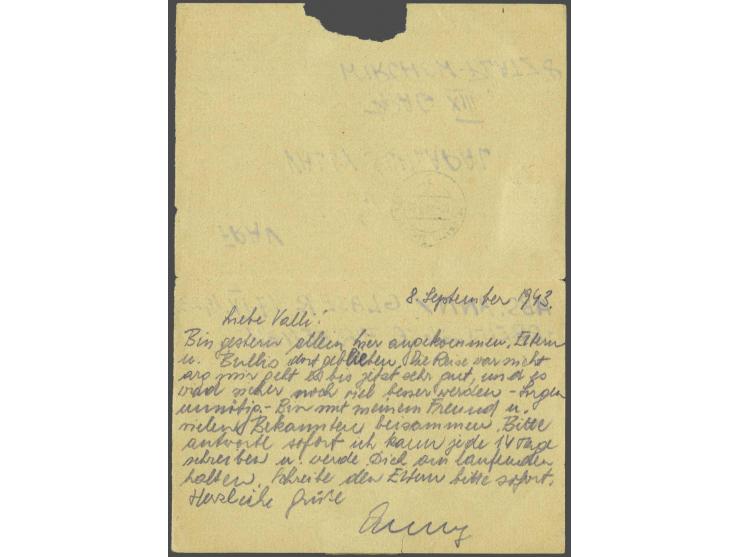 8. September 1943
Liebe Valli!
Bin gestern allein hier angekommen, Eltern
u. Bullis dort geblieben. Die Reise war nicht
arg mir geht es bis jetzt sehr gut, und es
wird sicher noch viel besser werden - Sorgen
unnötig. - Bin mit meinem Freund u.
vielen Bekannten beisammen. Bitte
antworte sofort ich kann jede 14 Tage
schreiben u. werde Dich am laufenden
halten. Schreibe den Eltern bitte sofort.
Herzliche Grüße